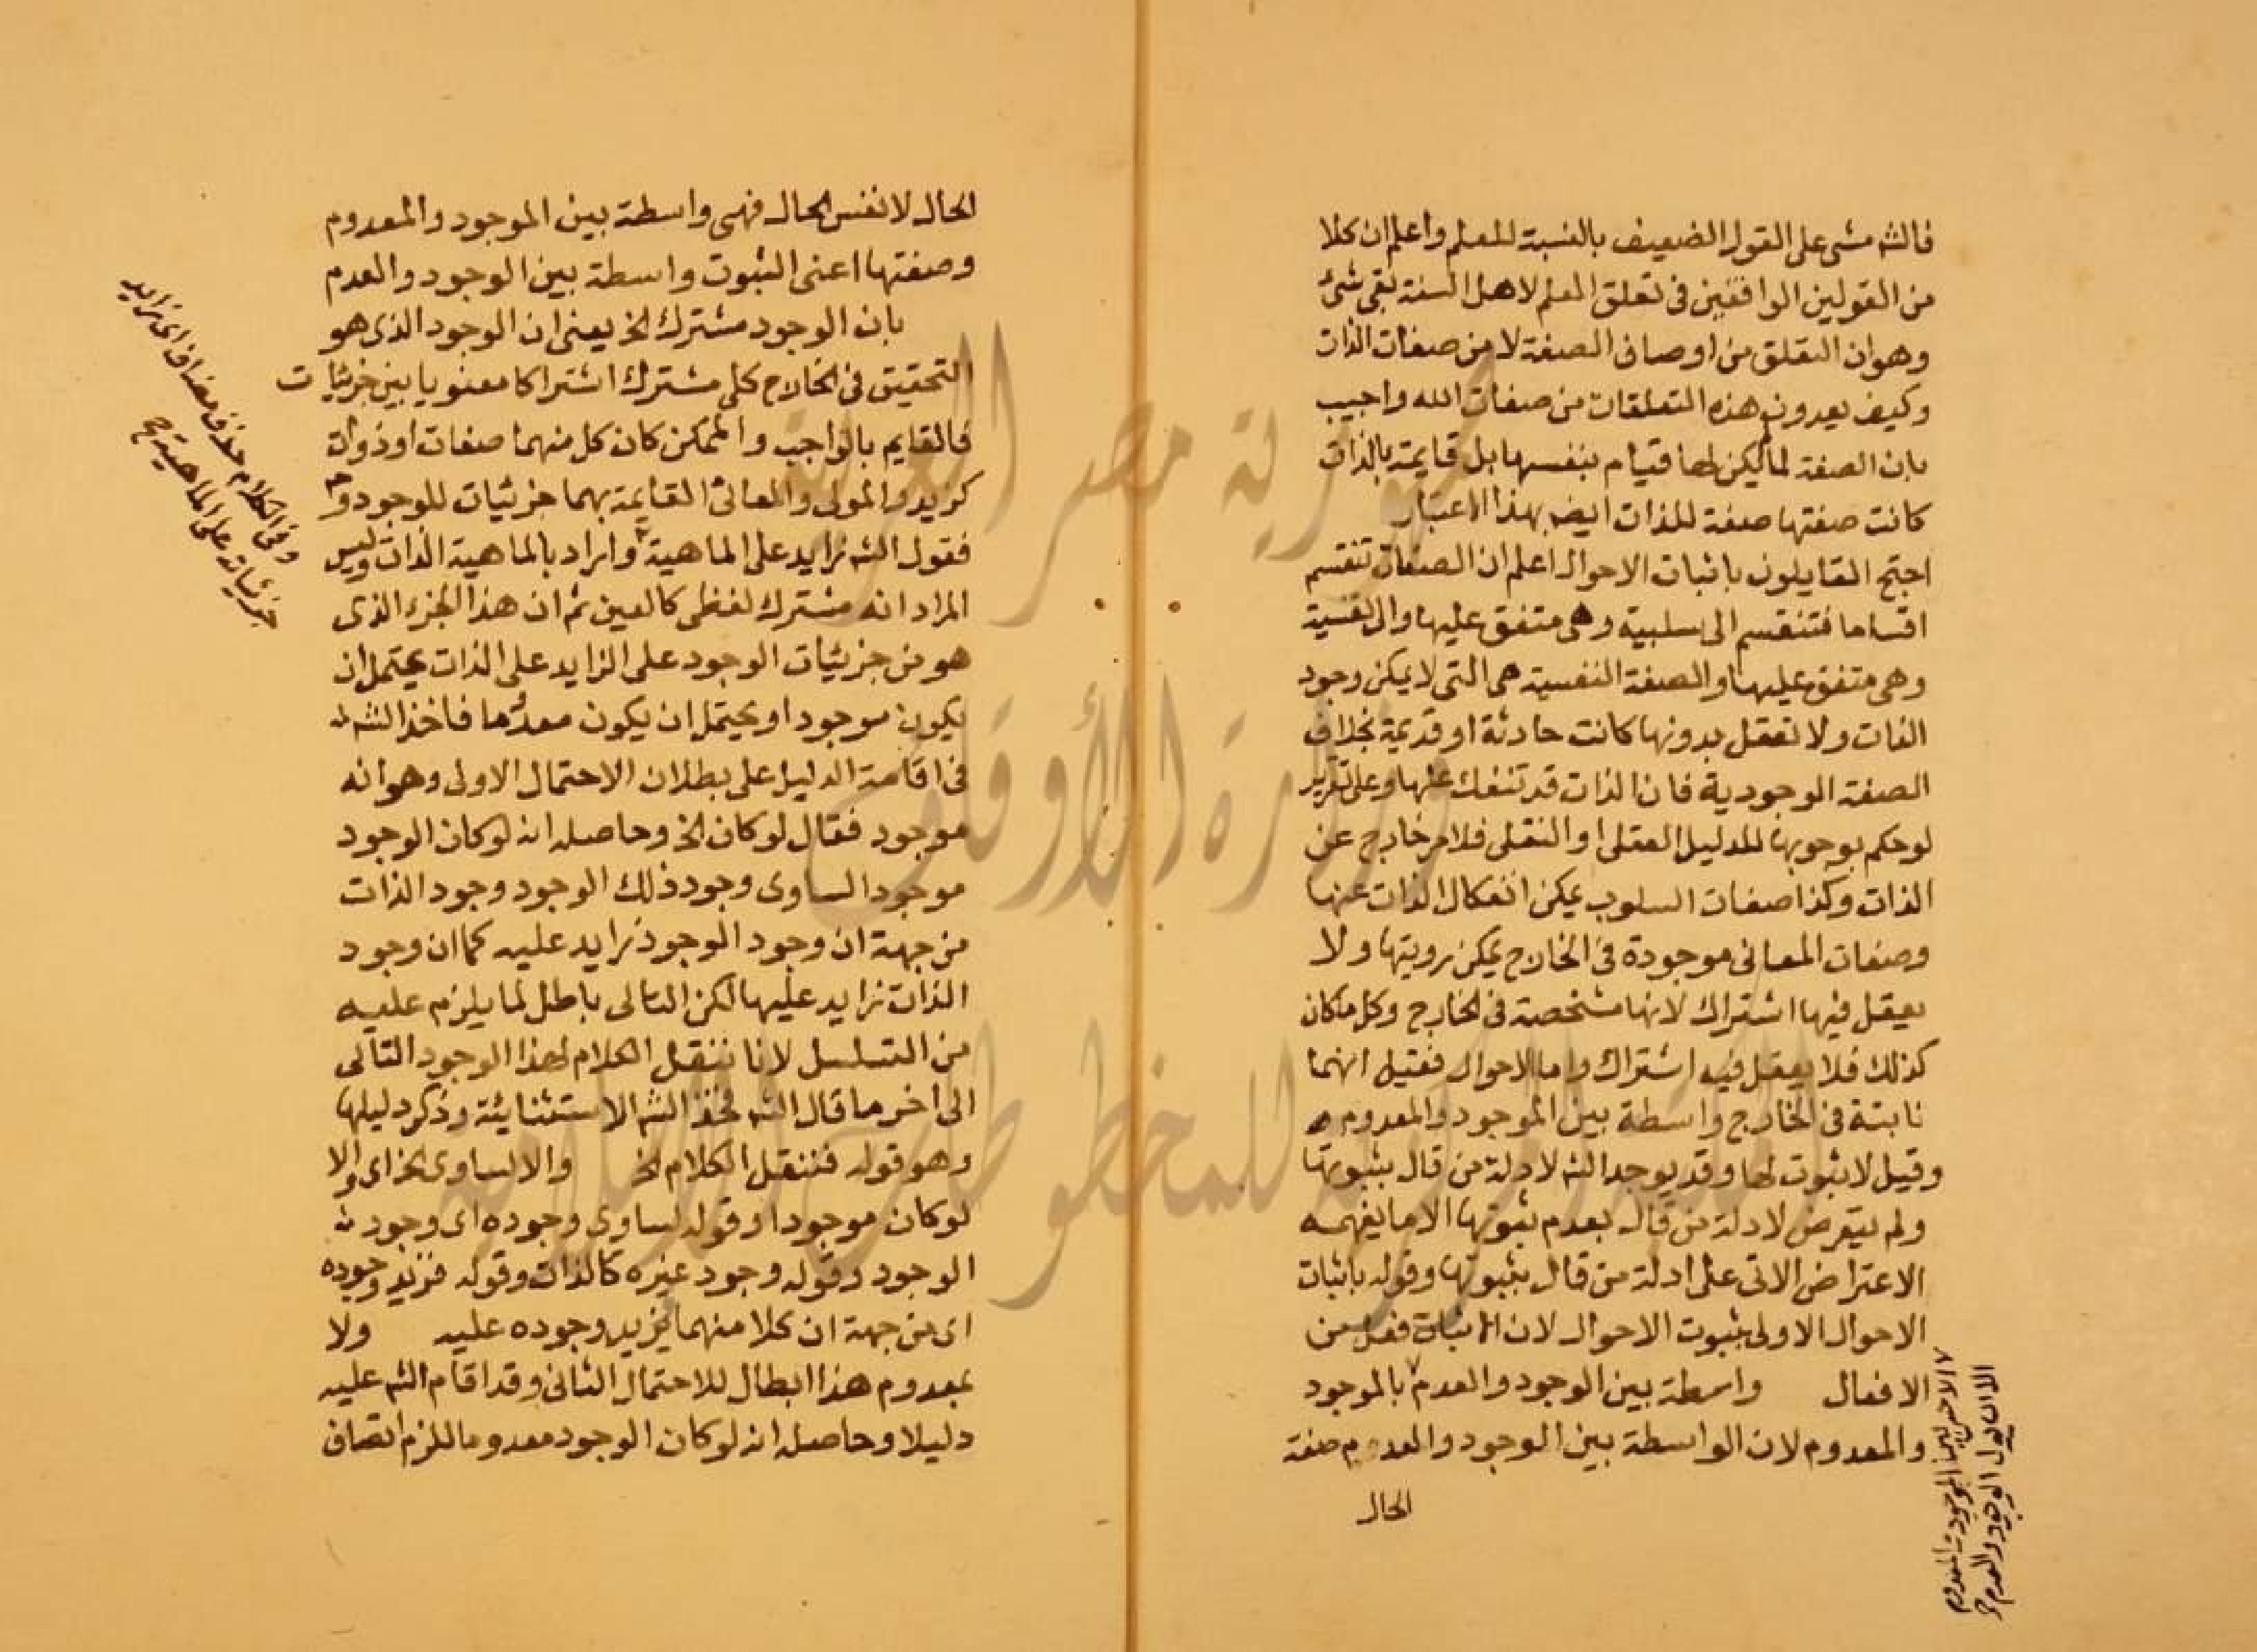 فالشه مشى على القول الضعيف بالنسبة للعلم واعلم ان كلا
من القولين الواقعين في تعلق العلم لاهل السنة بقي شئ
وهو ان التعلق من اوصاف الصفة لا من صفات الذات
وكيف يعدون هذه التعلقات من صفات الله واجيب
بان الصفة لما لم يكن لها قيام بنفسها بل قايمة بالذات
كانت صفتها صفة للذات ايضا بهذا الاعتبار
احتج القايلون باثبات الاحوال اعلم ان الصفات تنقسم
اقساما فتنقسم الى سلبية وهي متفق عليها والى نفسية
وهي متفق عليها والصفة النفسية هي التي لا يمكن وجود
الذات ولا تعقل بدونها كانت حادثة او قديمة بخلاف
الصفة الوجودية فان الذات قد تنفك عنها وعلى تقرير
لو حكم بوجوبها للدليل العقلى او النقلى فلامر خارج عن
الذات وكذا صفات السلوب يمكن انفكاك الذات عنها
وصفات المعانى موجودة في الخارج يمكن رويتها ولا
يعقل فيها اشتراك لانها مشخصة في الخارج وكل ما كان
كذلك فلا يعقل فيه اشتراك واما الاحوال فقيل انها
ثابتة في الخارج واسطة بين الموجود والمعدوم
وقيل لا ثبوت لها وقد يوجد الشه لادلة من قال بثبوتها
ولم يتعرض لادلة من قال بعدم ثبوتها الا ما يفهمه
الاعتراض الاتى على ادلة من قال بثبوتها وقوله باثبات
الاحوال الاولى بثبوت الاحوال لان الاثبات فعل من
الافعال واسطة بين الوجود والعدم بالموجود
والمعدوم لان الواسطة بين الوجود والعدم صفة
الحال
الاولى ان يقول الوجود والعدم
الحال لا نفس الحال فهي واسطة بين الموجود والمعدوم
وصفتها اعنى الثبوت واسطة بين الوجود والعدم
بان الوجود مشترك الخ يعنى ان الوجود الذي هو
التحقيق في الخارج كلى مشترك اشتراكا معنويا بين جزئيات
فالقايم بالواجب والممكن كان كل منهما صفات او ذوات
كزيد والمولى والمعانى القايمة بهما جزئيات للوجود وح
فقول الشه زايد على الماهية واراد بالماهية الذات وليس
المراد انه مشترك لفظى كالعين ثم ان هذا الجزء الذى
هو من جزئيات الوجود على الزايد على الذات يحتمل ان
يكون موجودا ويحتمل ان يكون معدوما فاخذ الشه
في اقامة الدليل على بطلان الاحتمال الاولى وهو انه
موجود فقال لو كان الخ وحاصله انه لو كان الوجود
موجودا لساوى وجود ذلك الوجود وجود الذات
من جهة ان وجود الوجود زايد عليه كما ان وجود
الذات زايد عليها لكن التالى باطل لما يلزم عليه
من التسلسل لانا ننقل الكلام لهذا الوجود التالى
الى اخر ما قال الشه فحذف الشه الاستثنايئة وذكر دليلها
وهو قوله فننقل الكلام الخ والا لساوى الخ اى والا
لو كان موجودا وقوله لساوى وجوده اى وجود
الوجود وقوله وجود غيره كالذات وقوله فزيد وجوده
اى من جهة ان كلا منهما يزيد وجوده عليه ولا
بمعدوم هذا ابطال للاحتمال الثانى وقد اقام الشه عليه
دليلا وحاصله انه لو كان الوجود معدوما للزم اتصاف
وفي الكلام حذف مضاف اى زايد
جزئياته على الماهية